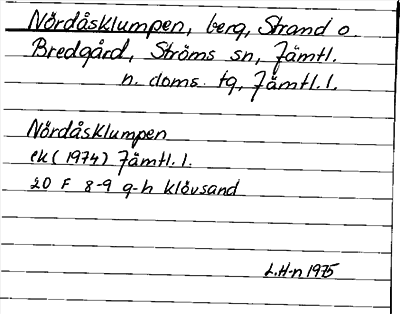 Nördåsklumpen, berg, Strand o.
Bredgård, Ströms sn, Jämtl.
n. doms. tg, Jämtl. l.
Nördåsklumpen
ek (1974) Jämtl. l.
20 F 8-9 g-h Klövsand
L.H-n 1975